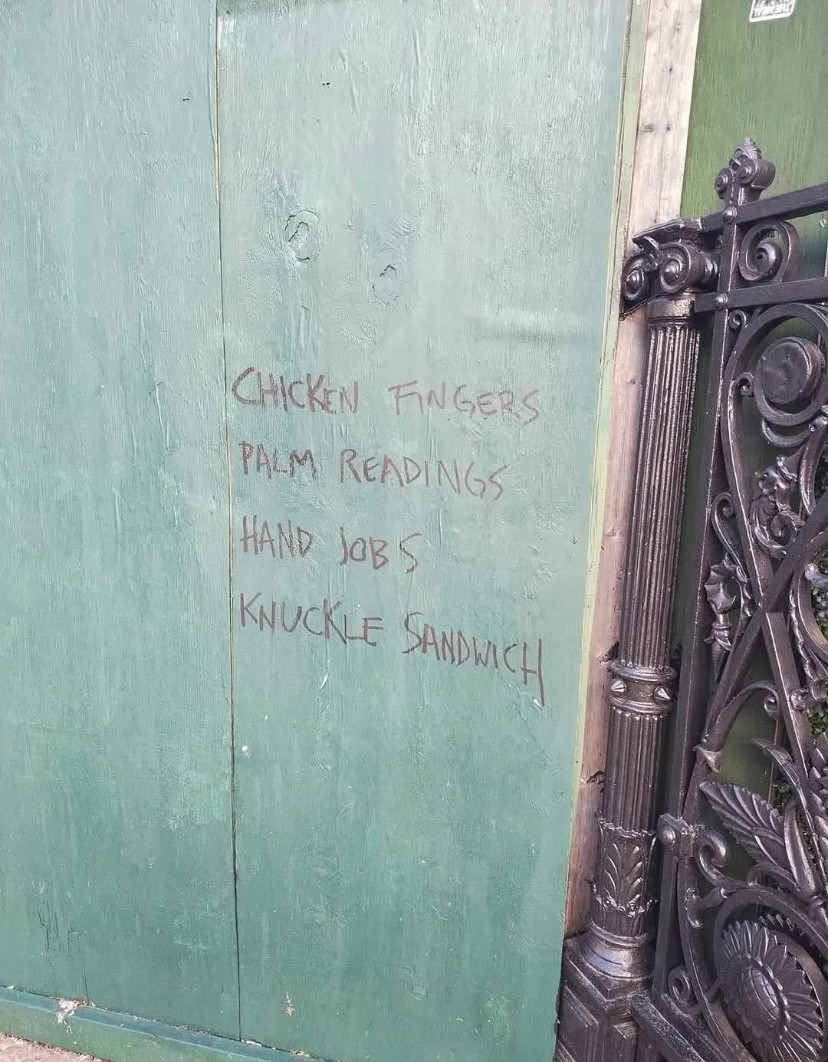 CHICKEN FINGERS
PALM READINGS
HAND JOBS
KNUCKLE SANDWICH